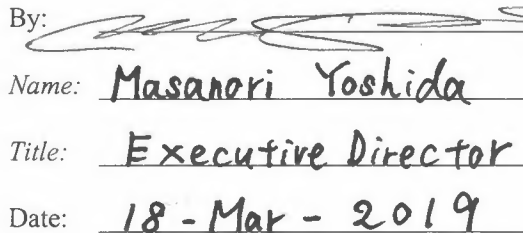 By:
Name: Masanori Yoshida
Title: Executive Director
Date: 18-Mar-2019